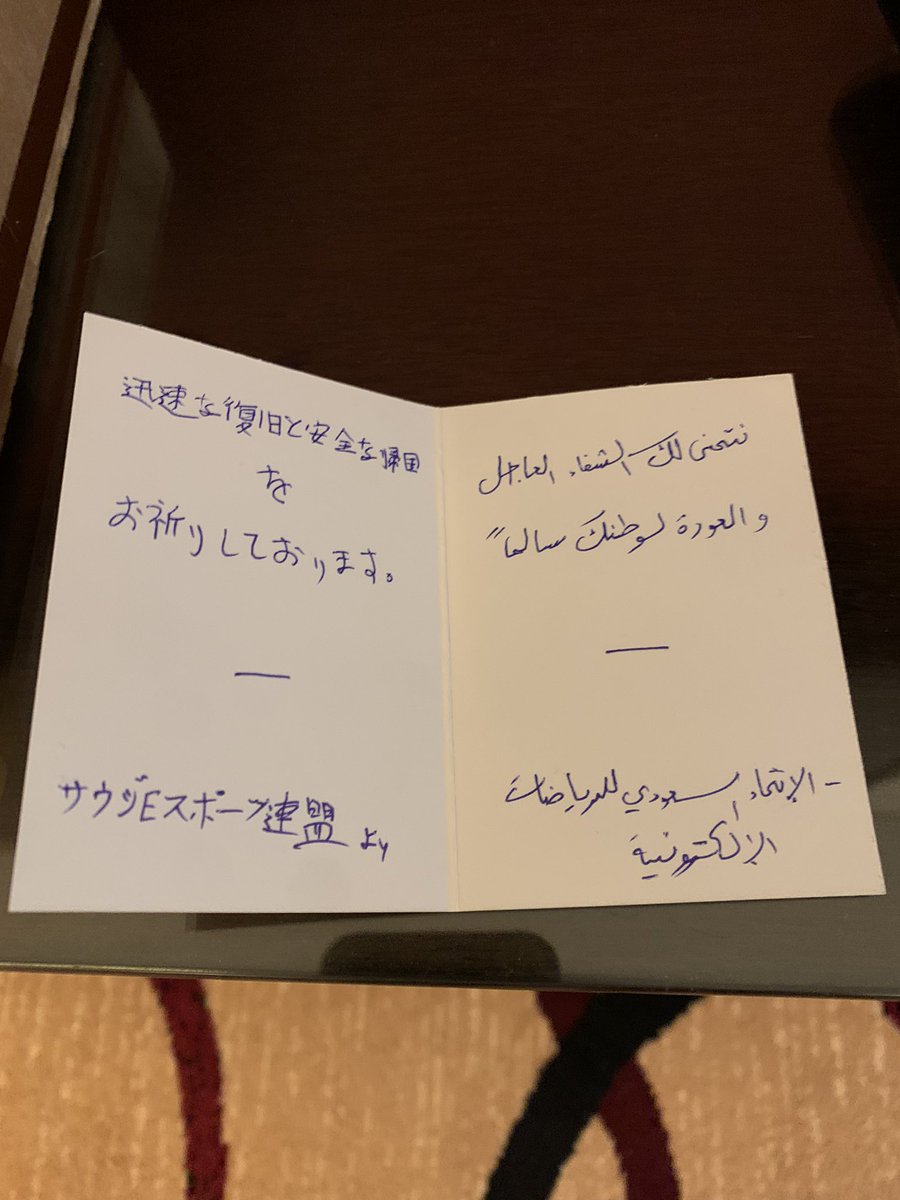 迅速な復旧と安全な帰国
を
お祈りしております。
—
サウジEスポーツ連盟 より
نتمنى لك الشفاء العاجل
والعودة لوطنك سالماً
—
- الإتحاد السعودي للرياضات
الإلكترونية